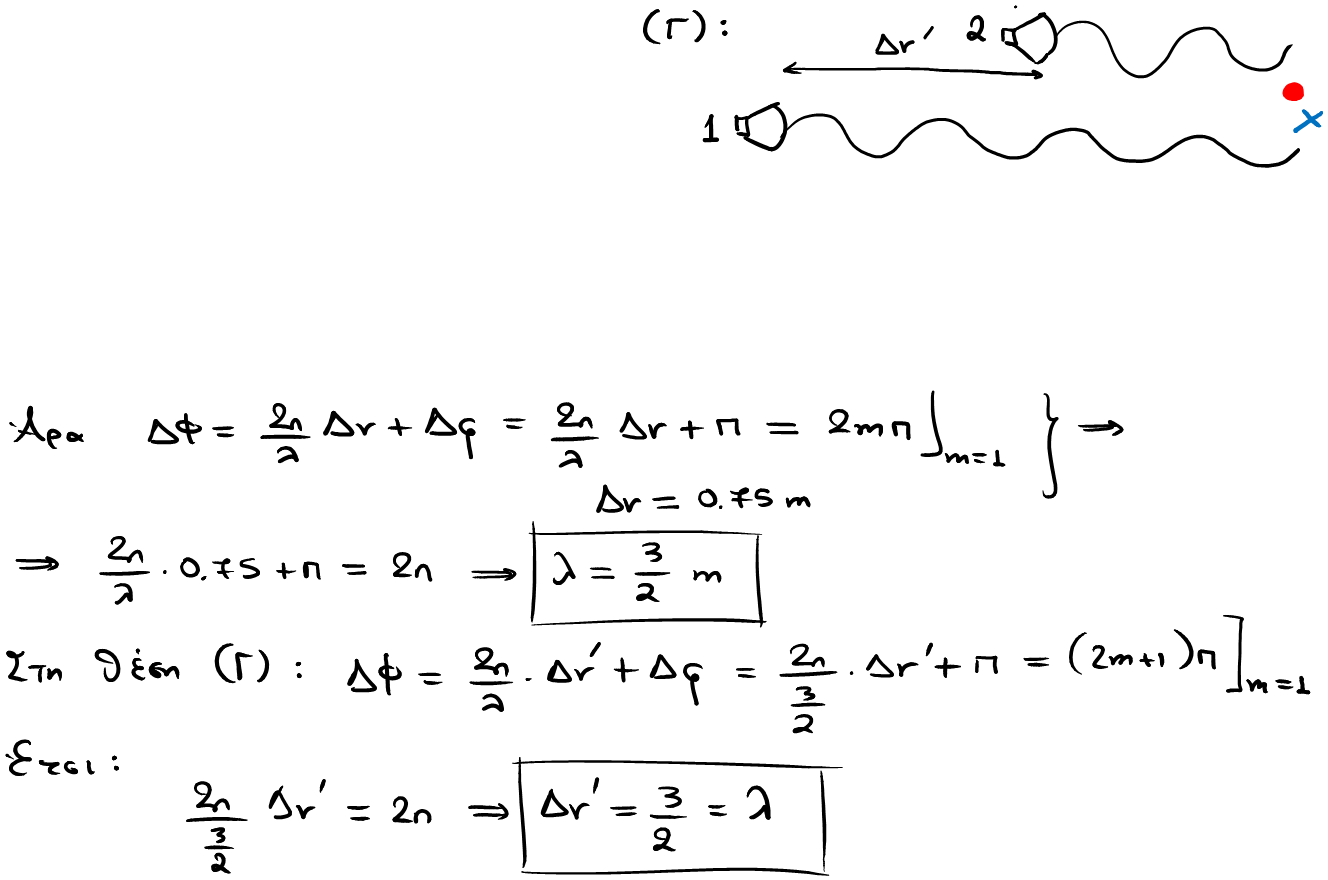 (Γ):
Δr' 2
1
Άρα ΔΦ = 2π/λ Δr + Δφ = 2π/λ Δr + π = 2mπ]m=1 } ⇒
Δr = 0.75 m
⇒ 2π/λ · 0.75 + π = 2π ⇒ λ = 3/2 m
Στη θέση (Γ): ΔΦ = 2π/λ · Δr' + Δφ = 2π/(3/2) · Δr' + π = (2m+1)π]m=1
Έτσι:
2π/(3/2) Δr' = 2π ⇒ Δr' = 3/2 = λ